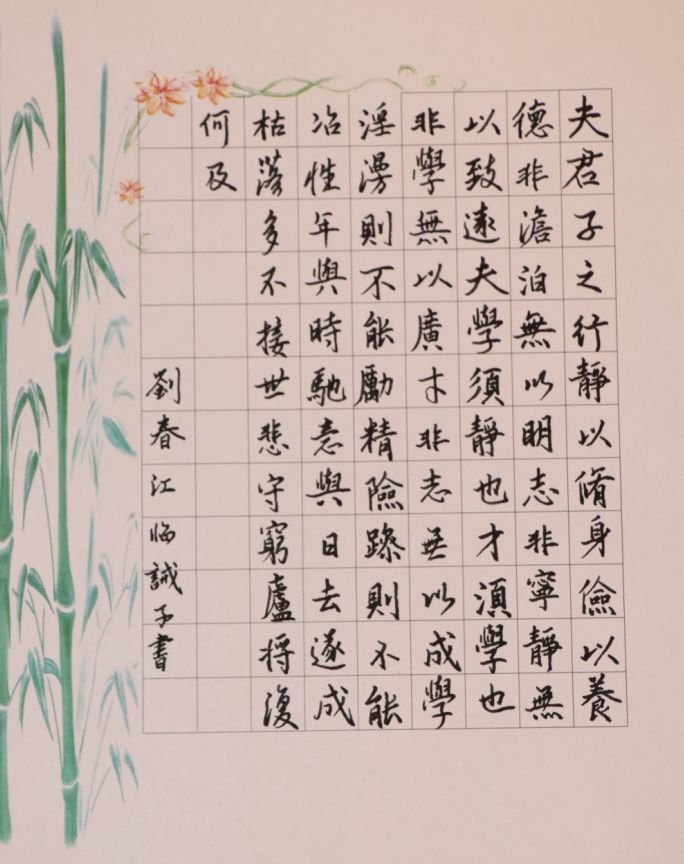 夫君子之行靜以脩身儉以養
德非澹泊無以明志非寧靜無
以致遠夫學須靜也才須學也
非學無以廣才非志無以成學
淫漫則不能勵精險躁則不能
冶性年與時馳意與日去遂成
枯落多不接世悲守窮廬將復
何及
劉春江临誡子書